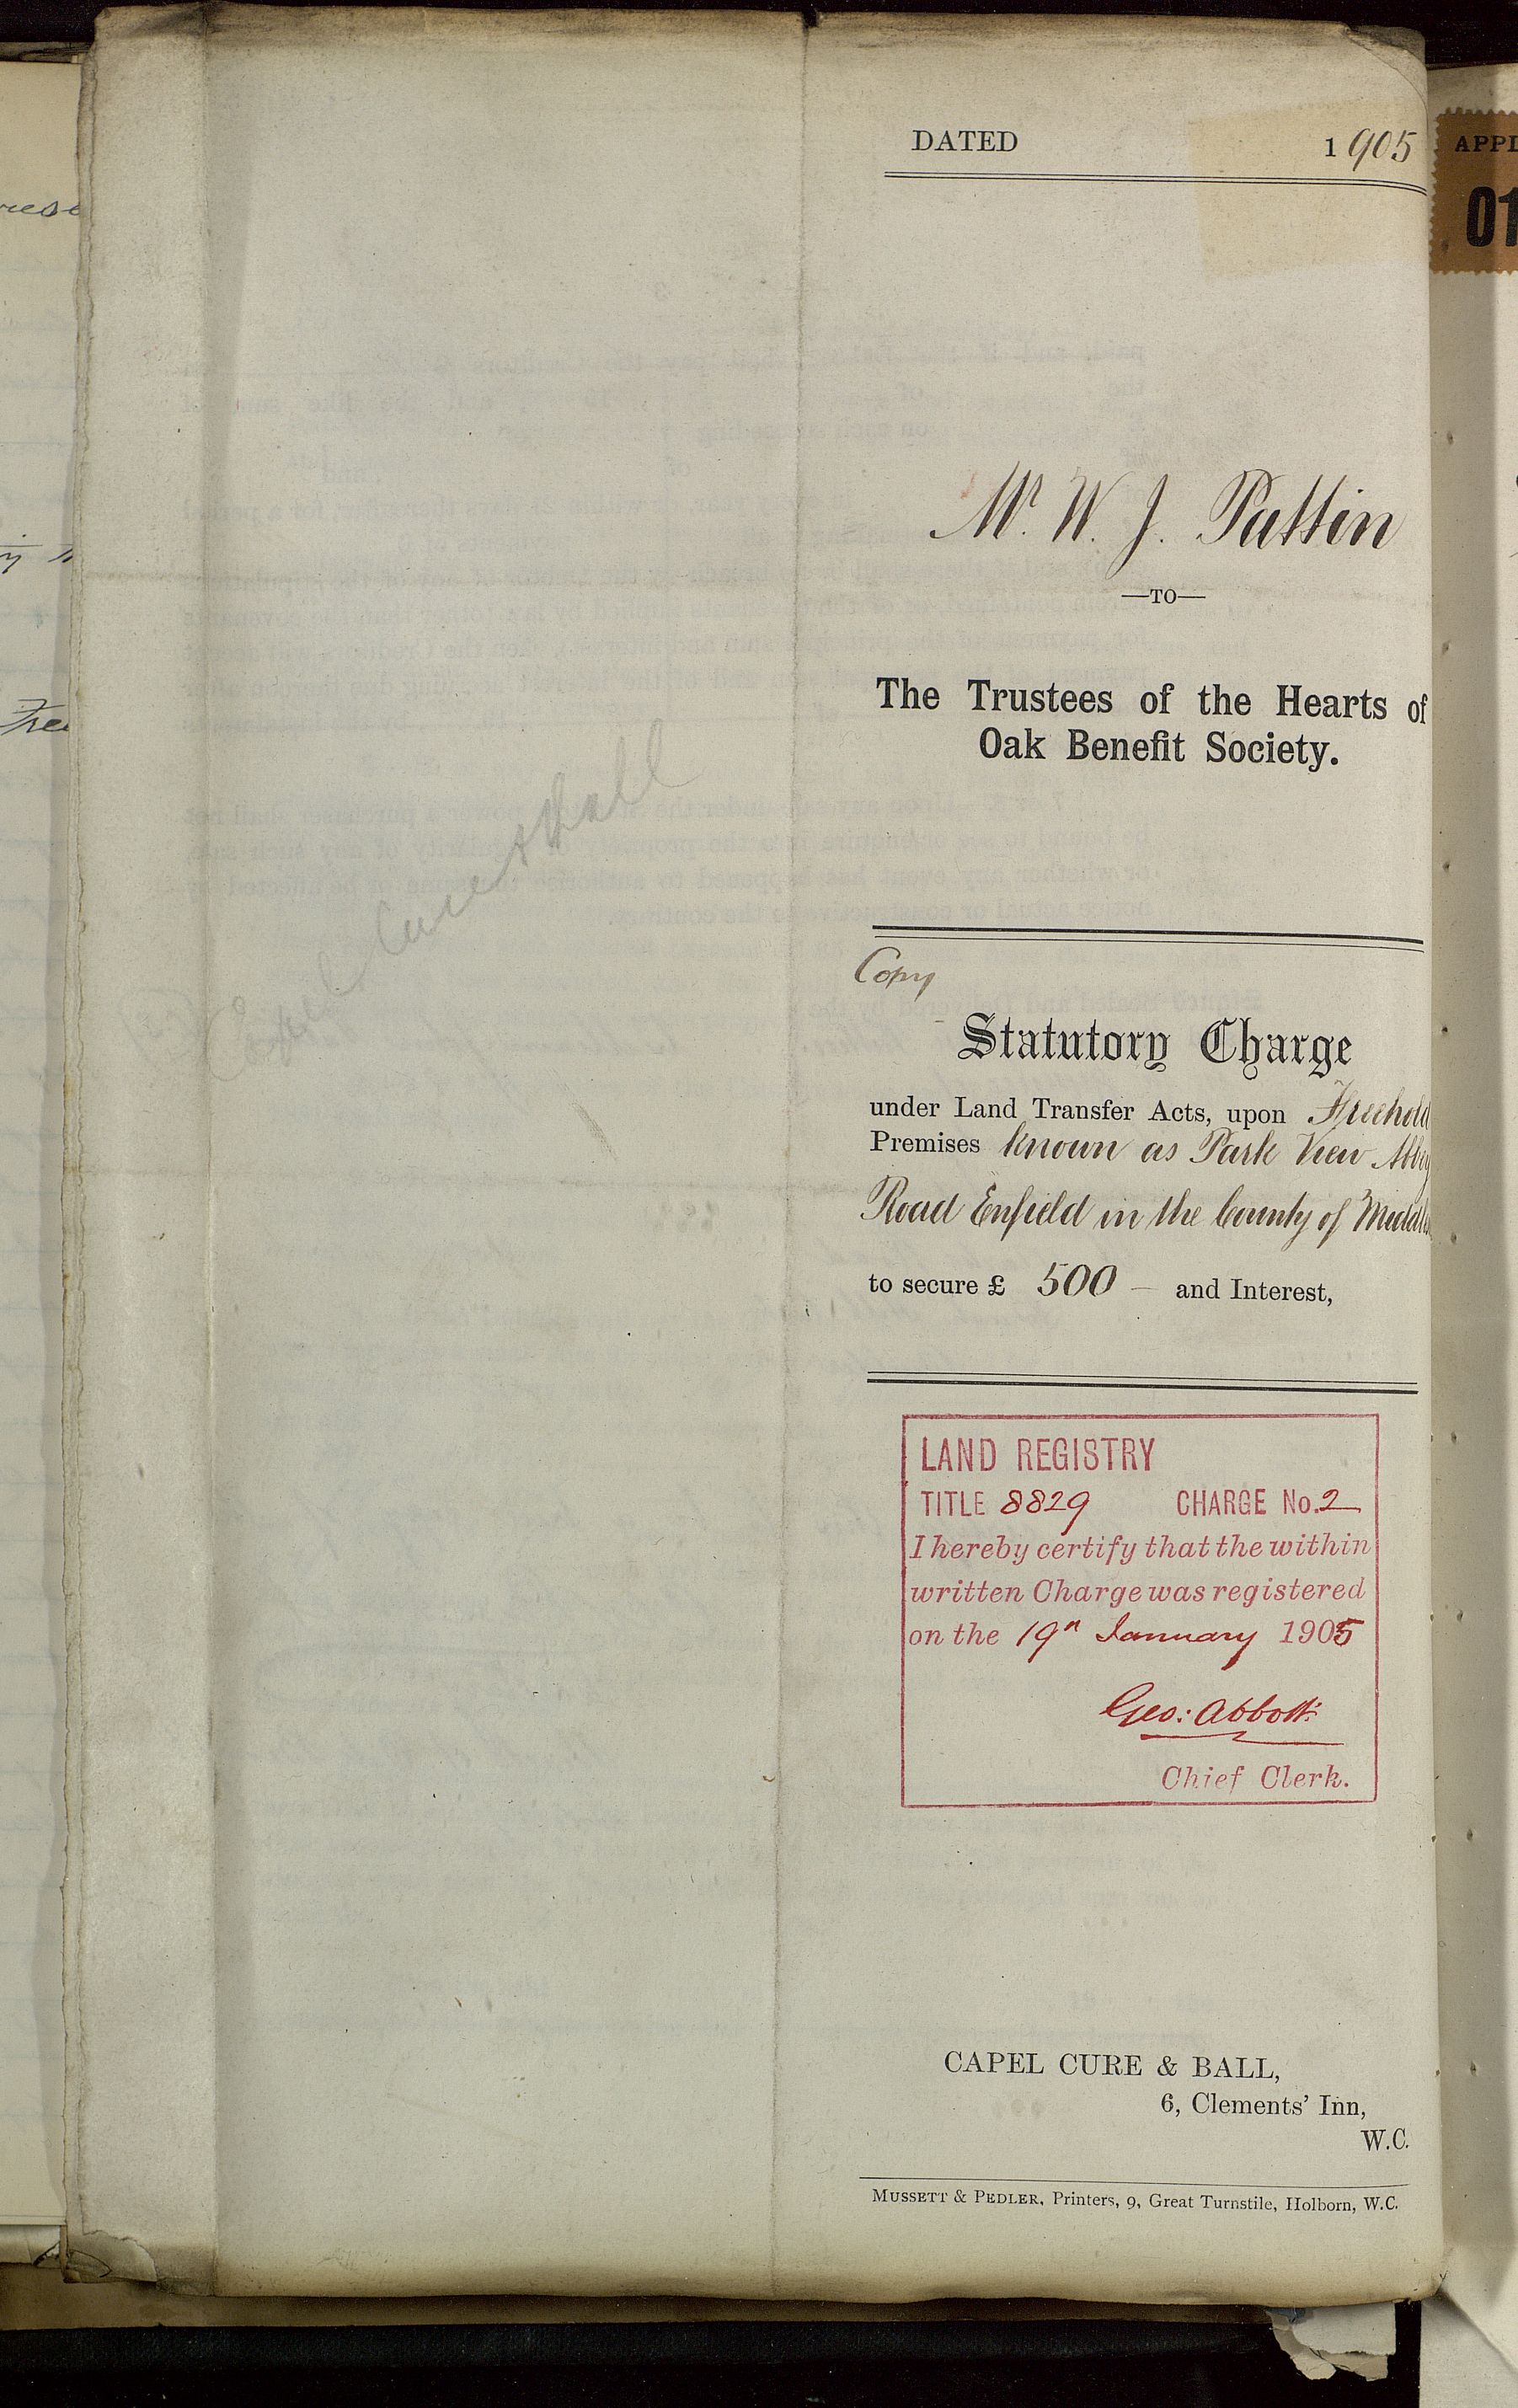 DATED 1905
Mr. W. J. Pattin
—TO—
The Trustees of the Hearts of
Oak Benefit Society.
Copy
Statutory Charge
under Land Transfer Acts, upon Freehold
Premises known as Park View Abbey
Road Enfield in the County of Middle
to secure £ 500 — and Interest,
LAND REGISTRY
TITLE 8829 CHARGE No. 2
I hereby certify that the within
written Charge was registered
on the 19th January 1905
Geo: Abbott
Chief Clerk.
CAPEL CURE & BALL,
6, Clements' Inn,
W.C.
MUSSETT & PEDLER, Printers, 9, Great Turnstile, Holborn, W.C.
Capel Cure & Ball
APPL
01